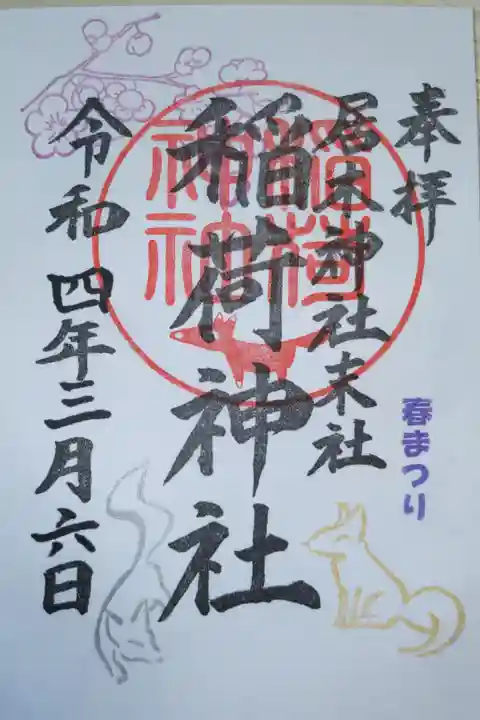 奉拝
春まつり
居木神社末社
稲荷神社
稲荷神社
令和四年三月六日